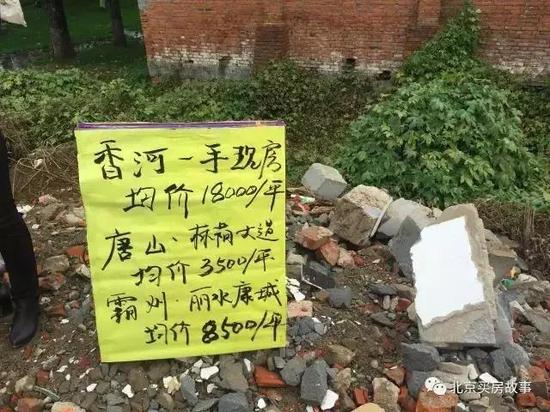 香河一手现房
均价18000/平
唐山·林荫大道
均价3500/平
霸州·丽水康城
均价8500/平
北京买房故事